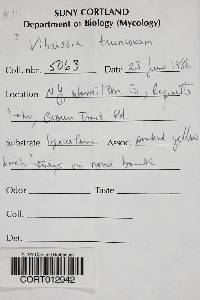 SUNY CORTLAND
Department of Biology (Mycology)
? Vibrissia truncorum
Coll. nbr. 5063 Date 23 June 1986
Location N.Y. Hamilton Co., Raquette
Lake, Brown Tract Rd.
Substrate Assoc. yellow
birch twigs on road bank
Odor Taste
Coll.
Det.
CORT012942